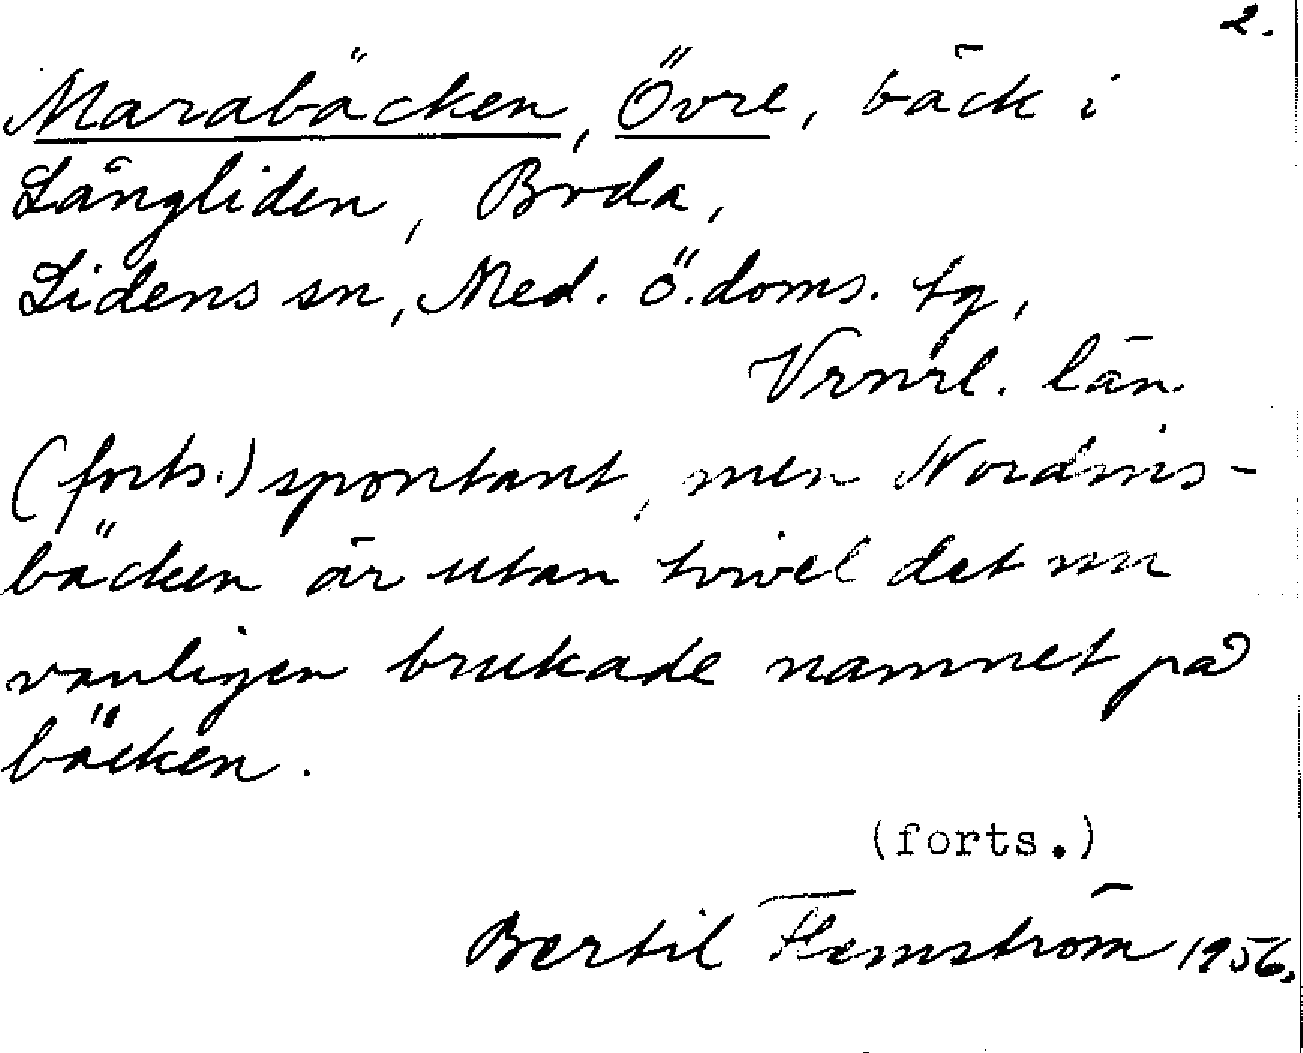 2.
Marabäcken, Övre, bäck i
Långliden, Boda,
Lidens sn, Med. ö. doms. tg,
Vrnrl. län.
(forts.) spontant, men Nordins-
bäcken är utan tvivel det nu
vanligen brukade namnet på
bäcken.
(forts.)
Bertil Flemström 1956.